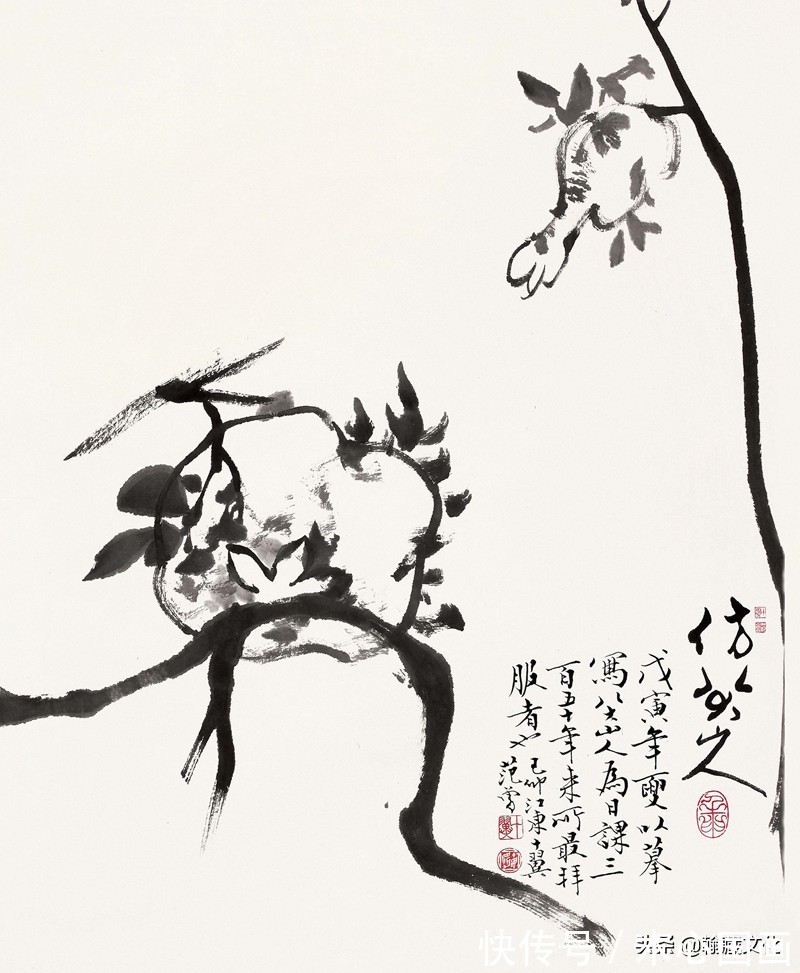 仿八大山人
戊寅年以摹
寫八大山人為日課三
百五十年来所最拜
服者也
己卯江東十翼
范曾
快传号 /
头条 @瀚藏文化